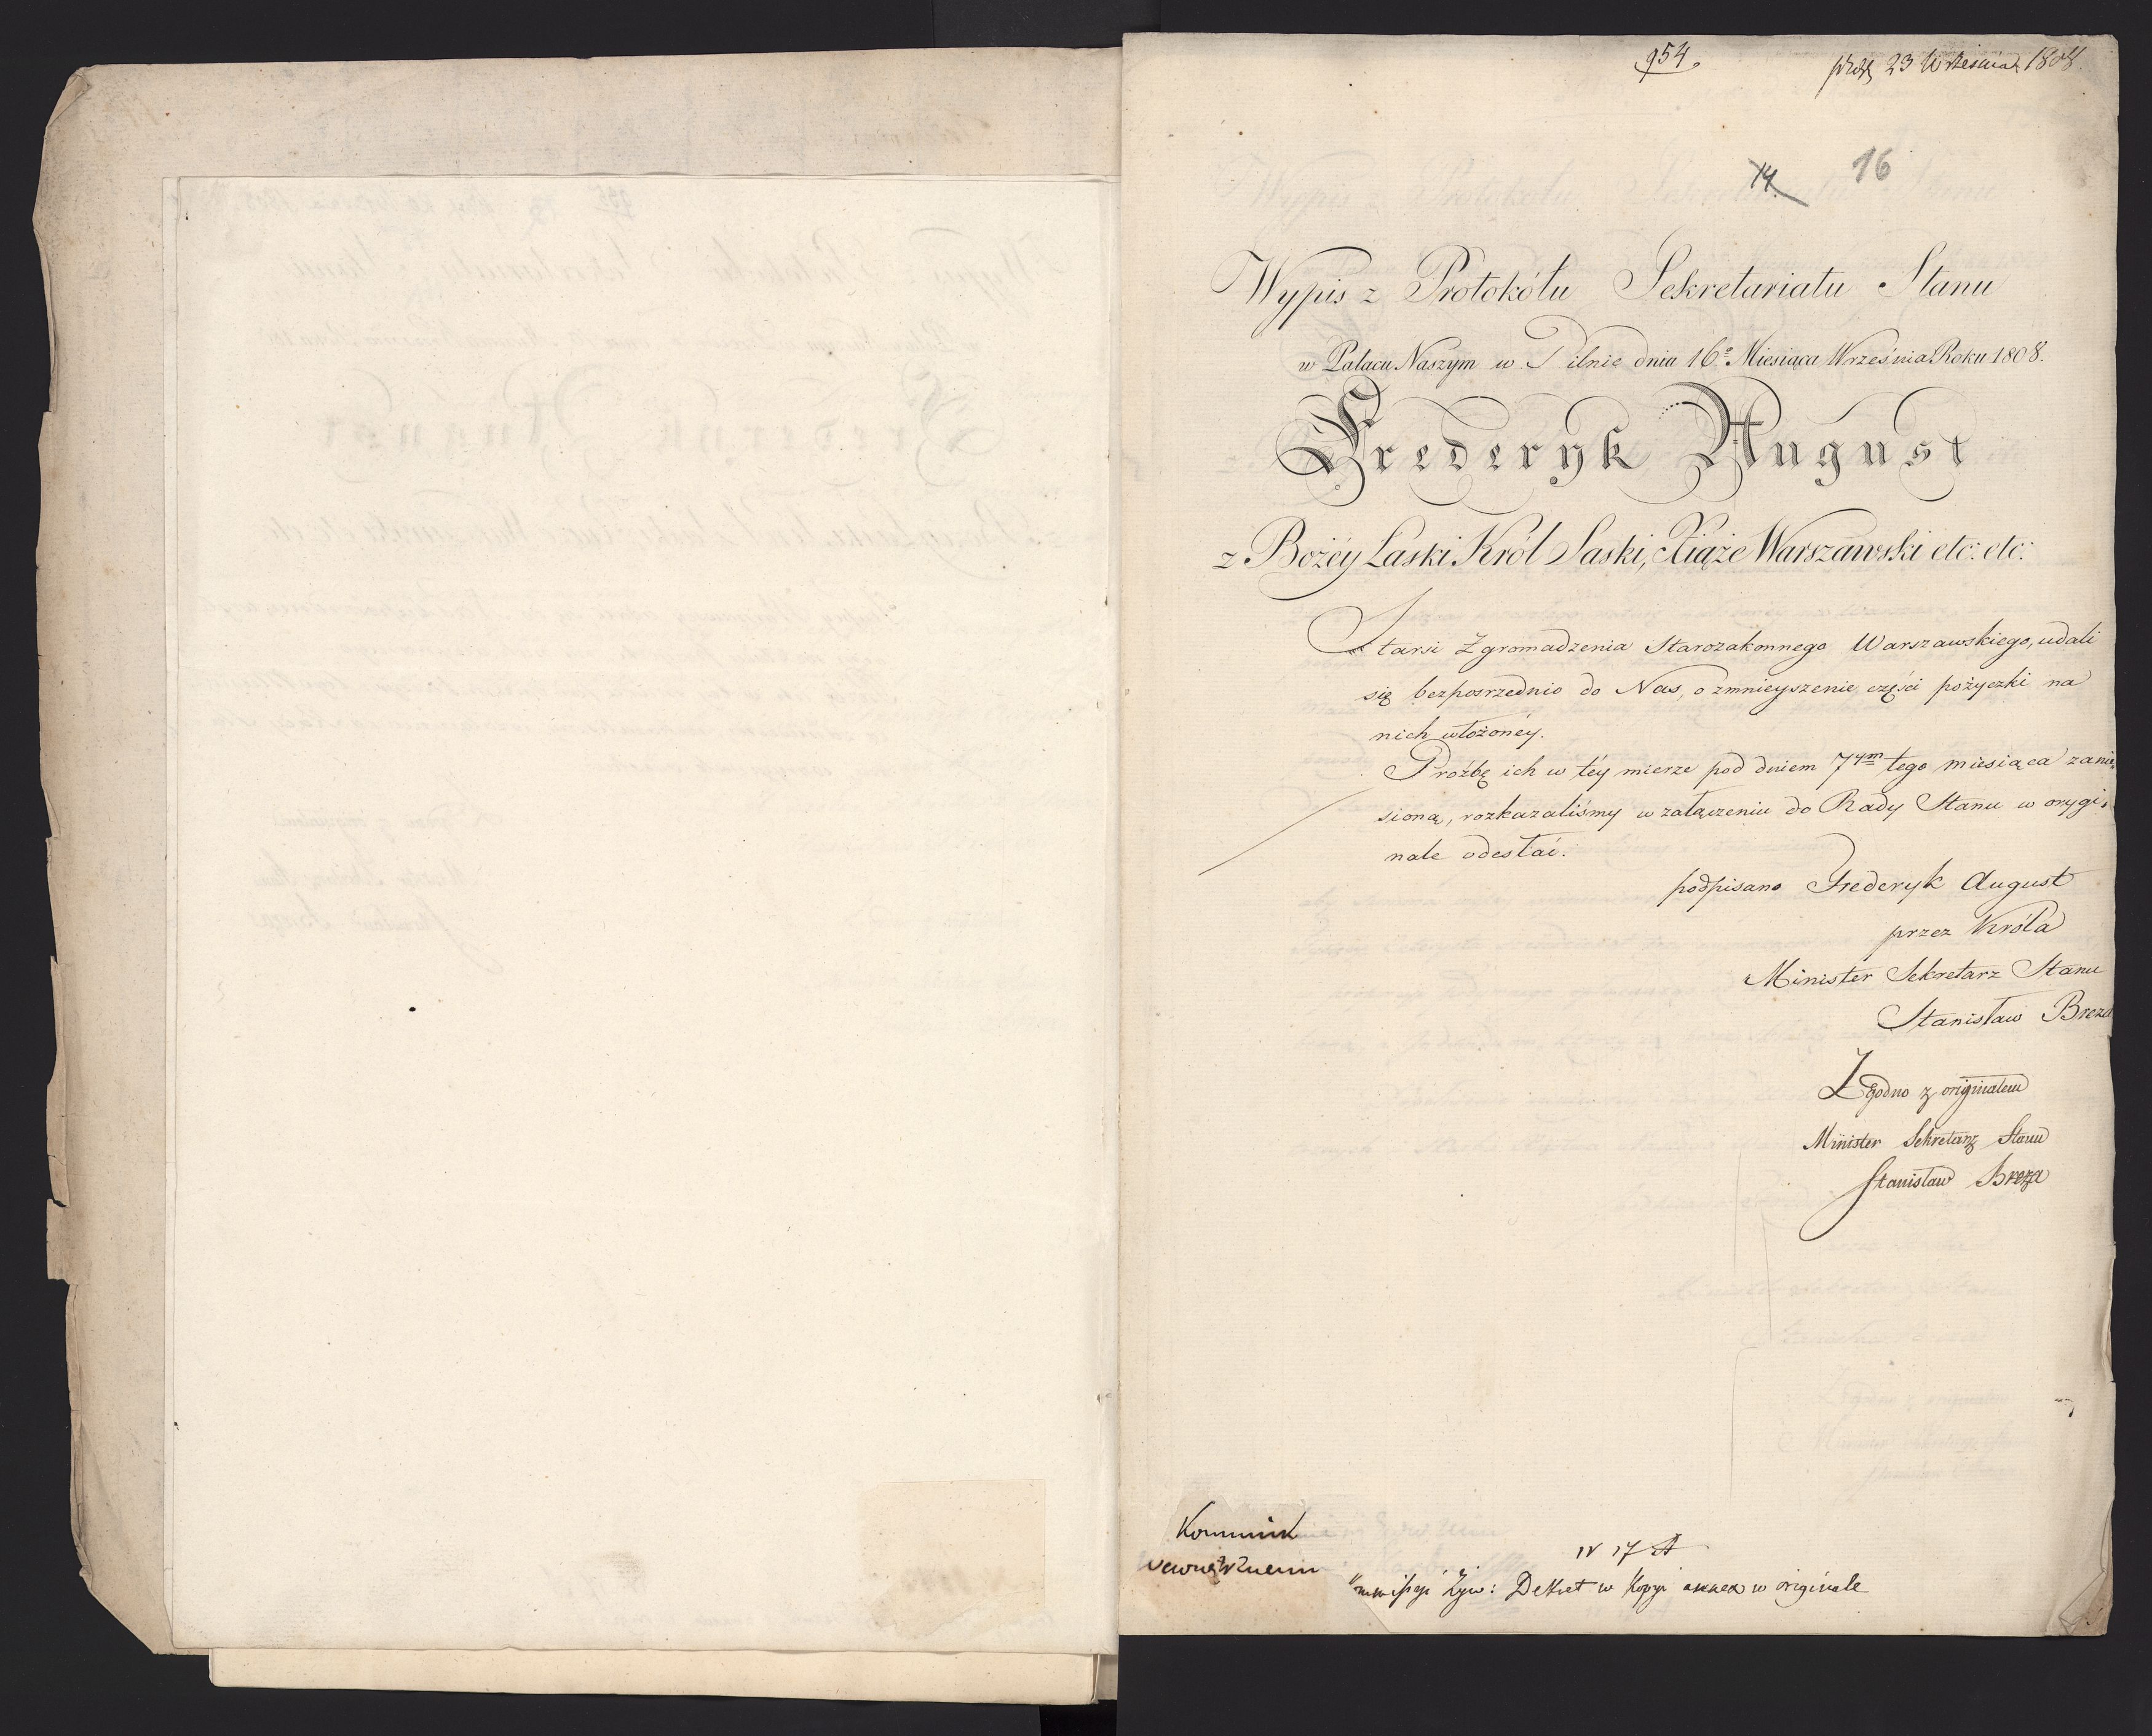 954.
23 Września 1808
14.
16
Wypis z Protokółu Sekretariatu Stanu
w Pałacu Naszym w Pilnie dnia 16º Miesiąca Września Roku 1808.
Frederyk August
z Bożéy Łaski Król Saski, Xiąże Warszawski etc: etc:
Starsi Zgromadzenia Starozakonnego Warszawskiego, udali
się bezposrzednio do Nas, o zmnieyszenie części pożyczki na
nich włożonéy.
Proźbę ich w téy mierze pod dniem 7ym tego miesiąca zanie„
sioną, rozkazaliśmy w załączeniu do Rady Stanu w orygi„
nale odesłać.
podpisano Frederyk August
przez Króla
Minister Sekretarz Stanu
Stanisław Breza
Zgodno z originałem
Minister Sekretarz Stanu
Stanisław Breza
Kommunik
Wewnętrznemi
N 17 A
Żyw: Dekret w Kopyi annex w originale